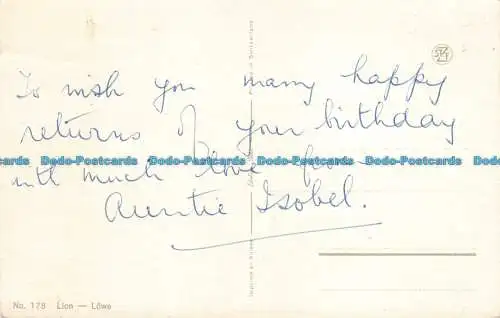 To wish you many happy
returns of your birthday
with much love from
Auntie Isobel.
Dodo-Postcards Dodo-Postcards Dodo-Postcards Dodo-Postcards Dodo-Postcards
No. 178 Lion — Löwe